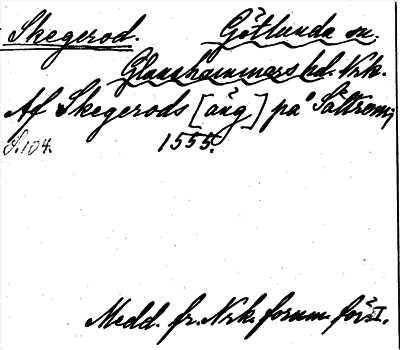 Skegerod. Götlunda sn.
Glanshammars hd. Nrk.
Af Skegerods [äng] på Sättrom;
S. 104. 1555.
Medd. fr. Nrk. fornm.för. I.